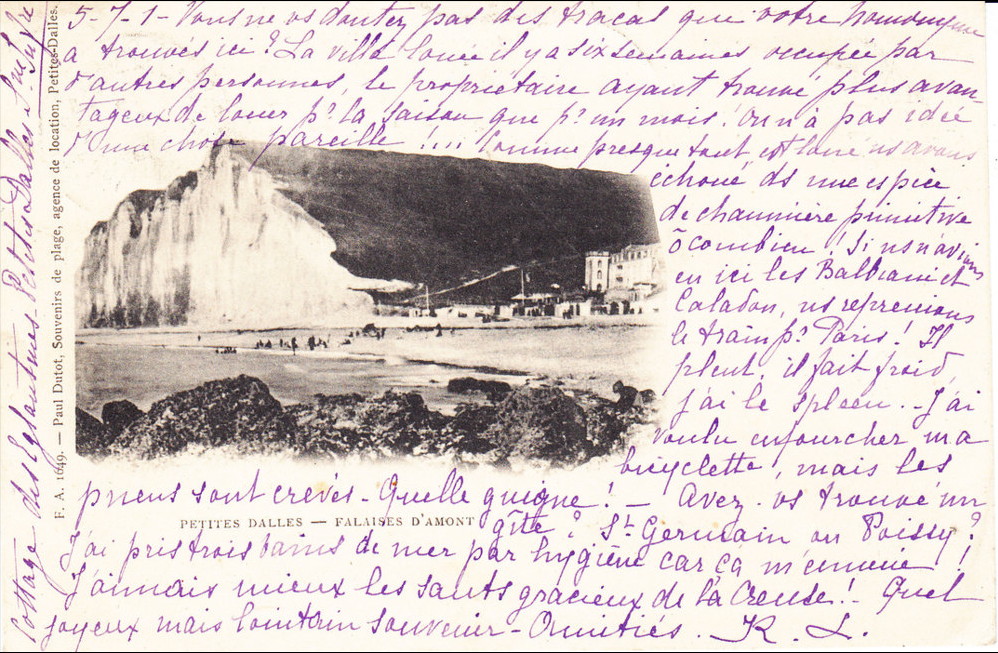 5-7-1- Vous ne vs doutez pas des tracas que votre homonyme
a trouvés ici? La villa louée il y a six semaines occupée par
d'autres personnes, le propriétaire ayant trouvé plus avan-
tageux de louer pr la saison que pr un mois. On n'a pas idée
d'une chose pareille!!... Comme presque tout est loué ns avons
échoué ds une espèce
de chaumière primitive
ô combien! Si ns n'avions
en ici les Balbiani et
Caladon, ns reprenions
le train pr Paris! Il
pleut, il fait froid,
j'ai le spleen. - J'ai
voulu enfourcher ma
bicyclette, mais les
pneus sont crevés - Quelle guigne! - Avez-vs trouvé un
gîte? St Germain ou Poissy?
PETITES DALLES — FALAISES D'AMONT
J'ai pris trois bains de mer par hygiène car ça m'ennuie!
J'aimais mieux les sauts gracieux de la Creuse! - Quel
joyeux mais lointain souvenir - Amitiés. K. L.
Cottage des Eglantines - Petites Dalles S. Inf.
F. A. 1649. — Paul Dutot, Souvenirs de plage, agence de location, Petites-Dalles.